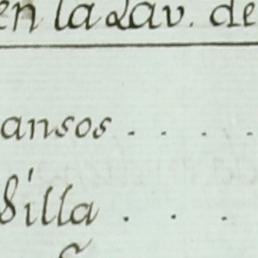 en la Lav. de
ansos . . . .
Silla . . .